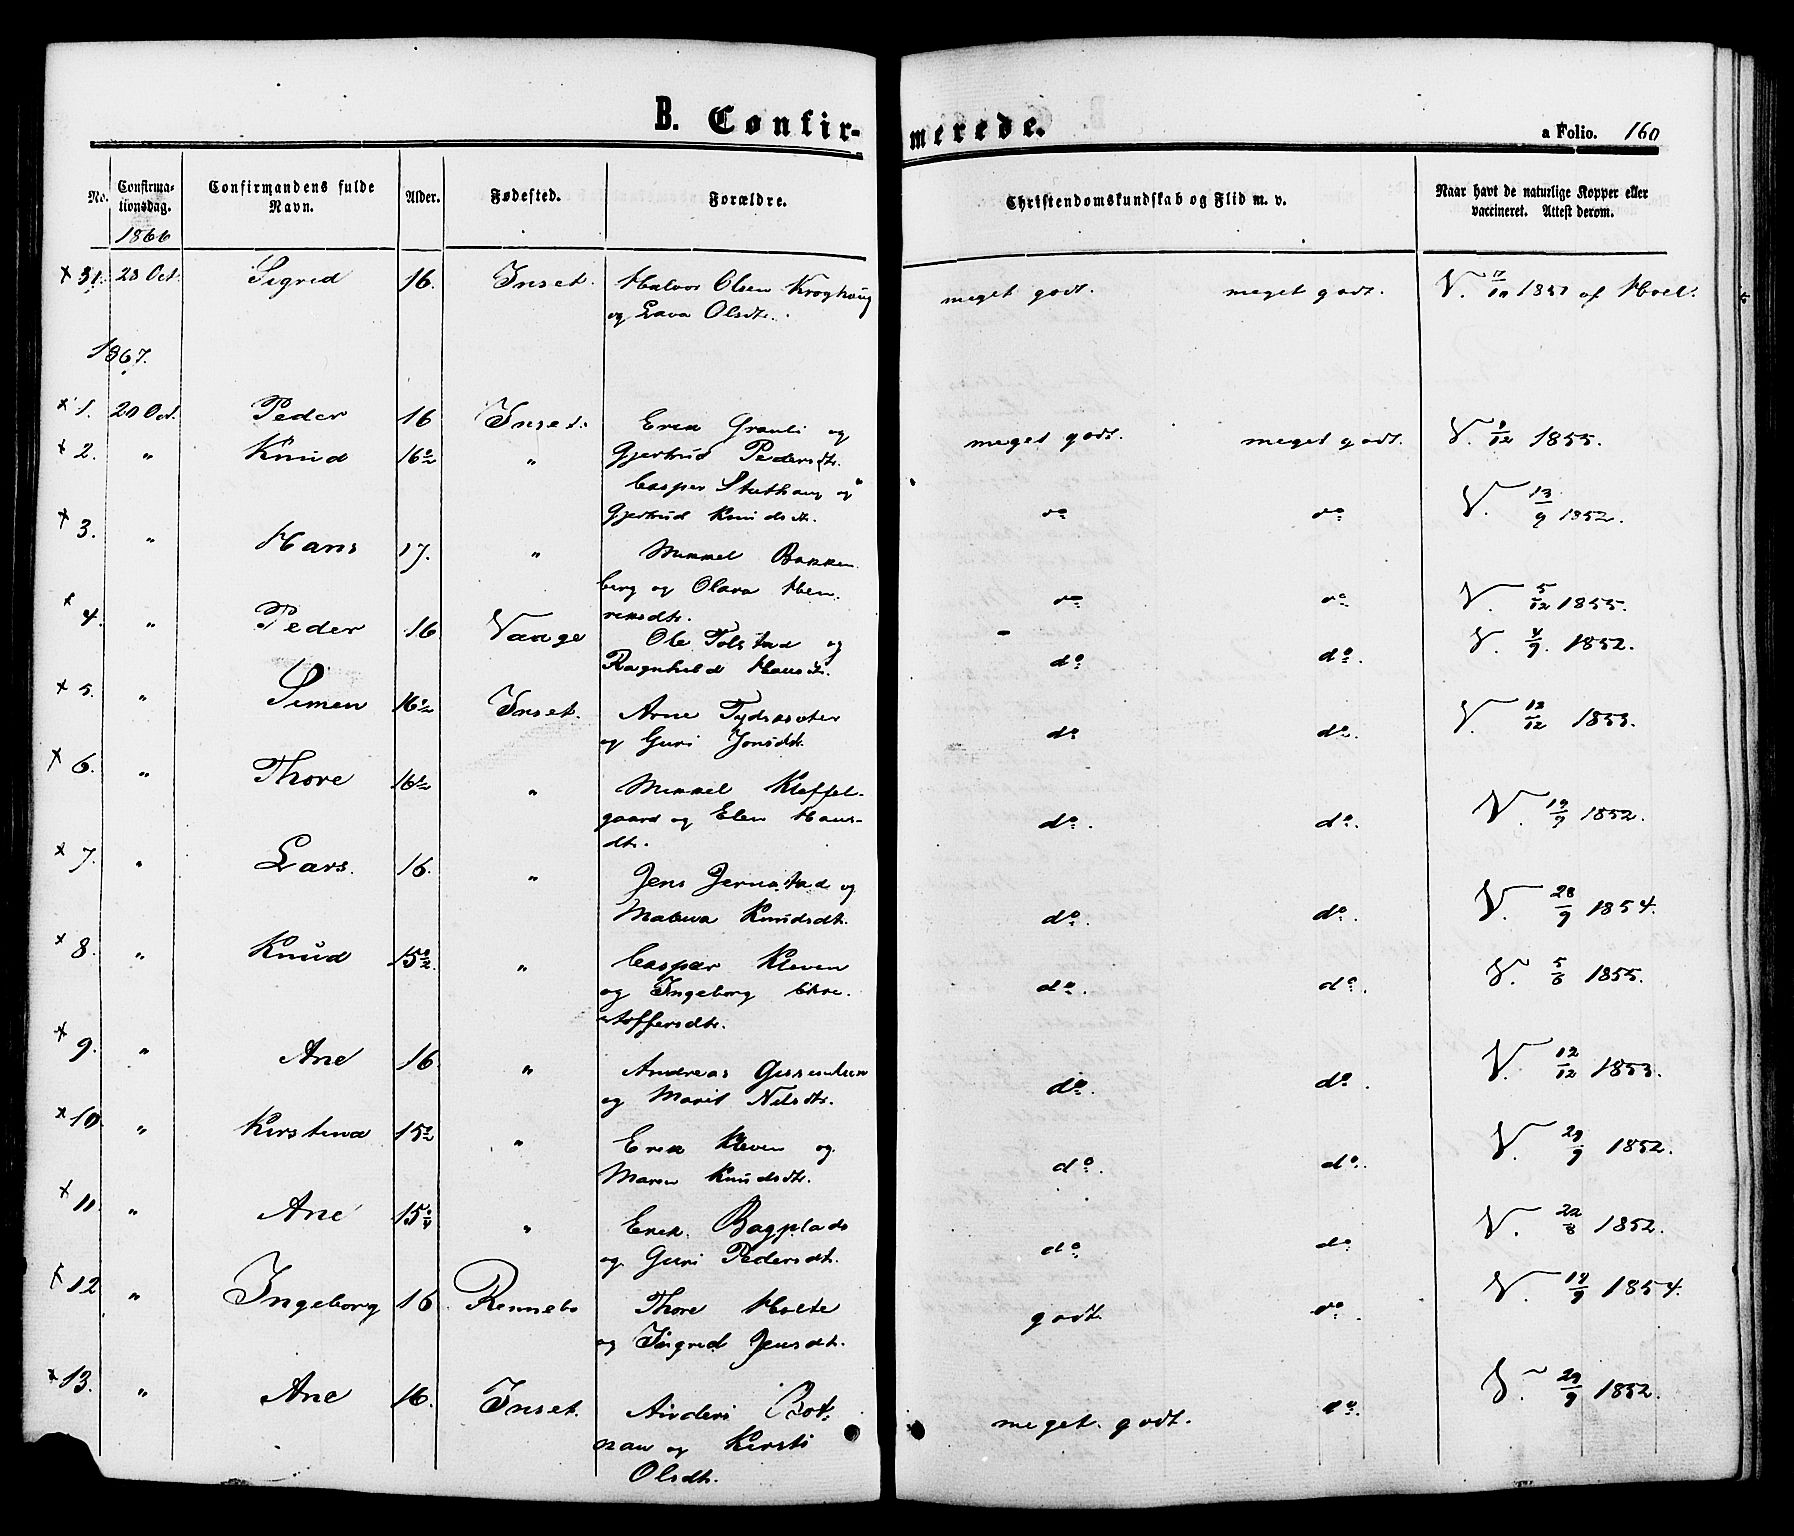 B. Confirmerede.
a Folio. 160
No. Confirmationsdag. Confirmandens fulde Navn. Alder. Fødested. Forældre. Christendomskundskab og Flid m. v. Naar havt de naturlige Kopper eller vaccineret. Attest derom.
1866
+ 31. 28 Oct. Sigrid 16. Inset. Halvor Olsen Kroghaug meget godt. meget godt. V. 1851 af Hoel.
og Lava Olsdtr.
1867.
+ 1. 20 Oct. Peder 16 Inset. Erik Granli og meget godt. meget godt. V. 9/12 1855.
Gjertrud Pedersdtr.
+ 2. " Knud 16½ " Casper Stuthaug og do do V. 13/9 1852.
Gjertrud Knudsdtr.
+ 3. " Hans 17. " Mikkel Bakken
berg og Olava Hen do do V. 5/12 1855.
riksdtr.
+ 4. " Peder 16 Vaage Ole Tolstad og do do V. 9/9. 1852.
Ragnhild Hansdtr.
+ 5. " Simen 16½ Inset. Arne Tydssæter do do. V. 12/12 1853.
og Guri Jonsdtr.
+ 6. " Thore 16½ " Mikkel Kleffel-
gaard og Elen Hans- do. do. V. 19/9 1852.
dtr.
+ 7. " Lars. 16. " Jens Jernstad og
Malena Knudsdtr. do. do. V. 28/9 1854.
+ 8. " Knud 15½ " Casper Kleven
og Ingeborg Chri- do. do. V. 5/6 1855.
stoffersdtr.
+ 9. " Ane 16 " Andreas
og Marit Nilsdtr. do do. V. 12/12 1853.
+ 10. " Kirstina 15½ " Erik Kleven og
Maren Knudsdtr. do. do. V. 29/9 1852.
+ 11. " Ane 15¾ " Erik Bagplads
og Guri Pedersdtr. do do V. 22/8 1852.
+ 12 " Ingeborg 16 Rennebo Thore Holte godt. do V. 14/9 1854.
og Sigrid Jensdtr.
+ 13. " Ane 16. Inset. Anders Bot- meget godt. do. V. 29/9 1852.
nan og Kirsti
Olsdtr.